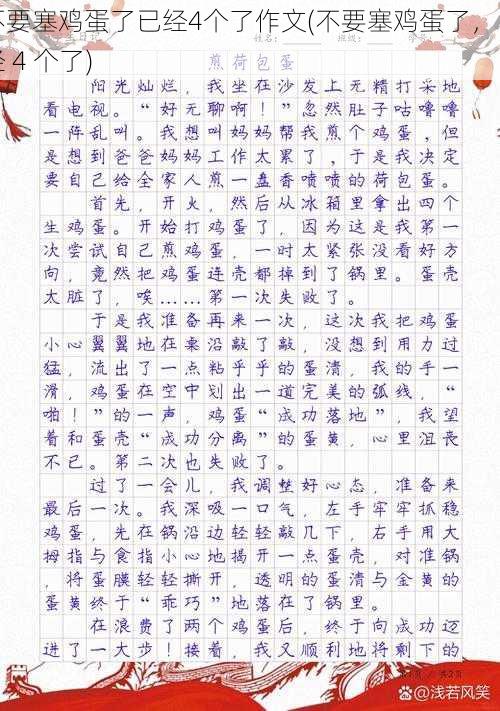 不要塞鸡蛋了已经4个了作文(不要塞鸡蛋了,
4个了)
煎荷包蛋
阳光灿烂，我坐在沙发上无精打采地
看电视。“好无聊啊！”忽然肚子咕噜噜
一阵乱叫。我想叫妈妈帮我煎个鸡蛋，但
是想到爸爸妈妈工作太累了，于是我决定
要自己给全家人煎一盘香喷喷的荷包蛋。
首先，开火，然后从冰箱里拿出四个
生鸡蛋。开始打鸡蛋了，因为这是我第一
次尝试自己煎鸡蛋，一时太紧张没看好方
向，竟然把鸡蛋连壳都掉到了锅里。蛋壳
太脏了，唉……第一次失败了。
于是我准备再来一次，这次我把鸡蛋
小心翼翼地在桌沿敲了敲，没想到用力过
猛，流出了一点粘乎乎的蛋清，我的手一
滑，鸡蛋在空中划出一道完美的弧线，“
啪！”的一声，鸡蛋“成功落地”，我望
着和蛋壳“成功分离”的蛋黄，心里沮丧
不已。第二次也失败了。
过了一会儿，我调整好心态，准备来
最后一次。我深吸一口气，左手牢牢抓稳
鸡蛋，先在锅沿边轻轻敲几下，右手用大
拇指与食指小心地揭开一点蛋壳，对准锅
，将蛋膜轻轻撕开，透明的蛋清与金黄的
蛋黄终于“乖巧”地落在了锅里。
在浪费了两个鸡蛋后，终于向成功迈
进了一大步！接着，我又顺利地将剩下的
第1页 / 共2页
@浅若风笑